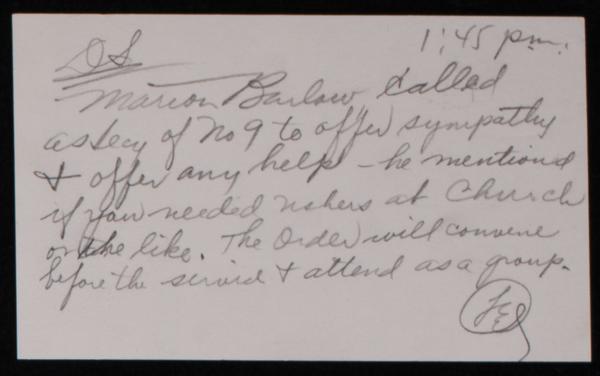 DS
1:45 pm.
Marion Barlow called
as Secy of No 9 to offer sympathy
& offer any help - he mentioned
if you needed ushers at Church
or the like. The Order will convene
before the service & attend as a group.